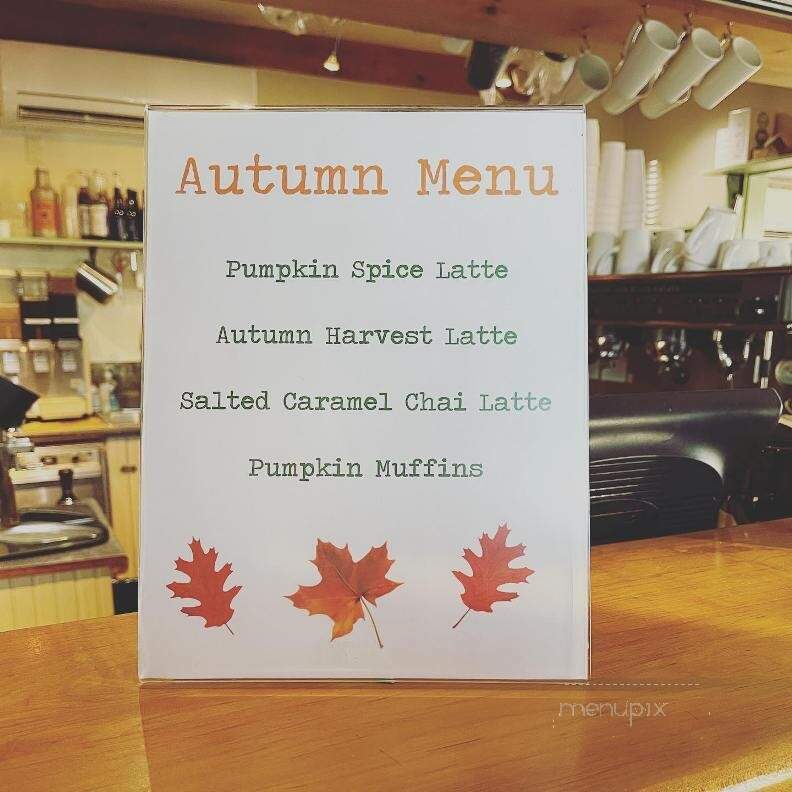 Autumn Menu
Pumpkin Spice Latte
Autumn Harvest Latte
Salted Caramel Chai Latte
Pumpkin Muffins
menupix